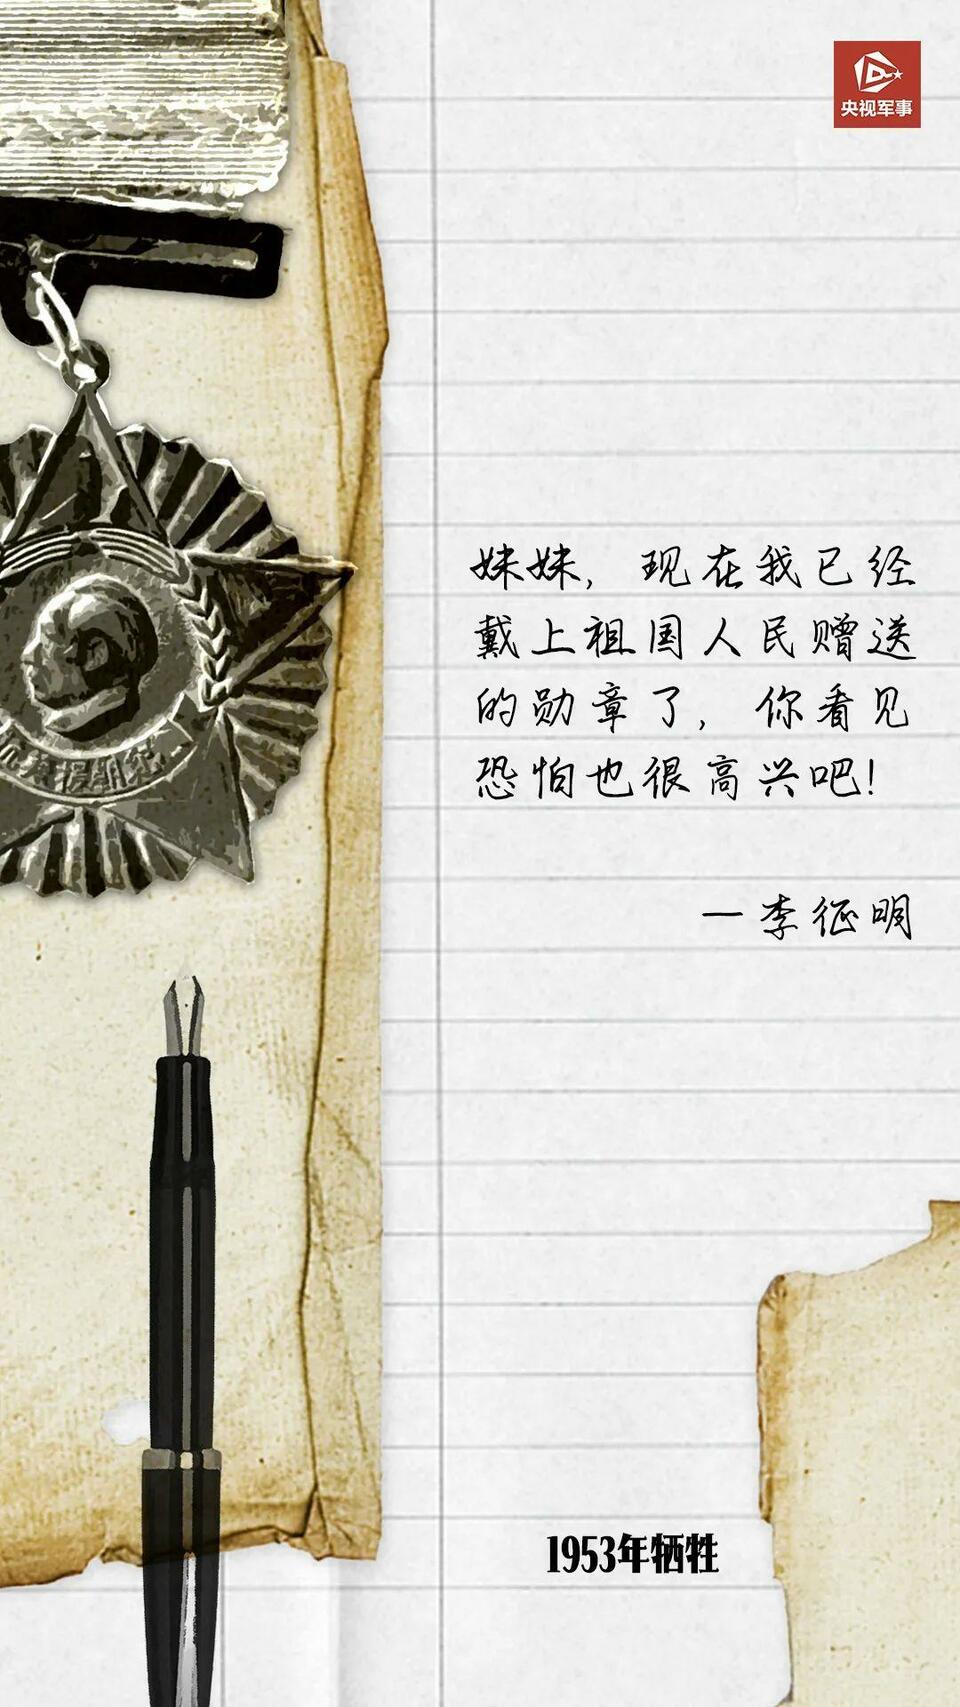 央视军事
妹妹，现在我已经
戴上祖国人民赠送
的勋章了，你看见
恐怕也很高兴吧！
—李征明
1953年牺牲